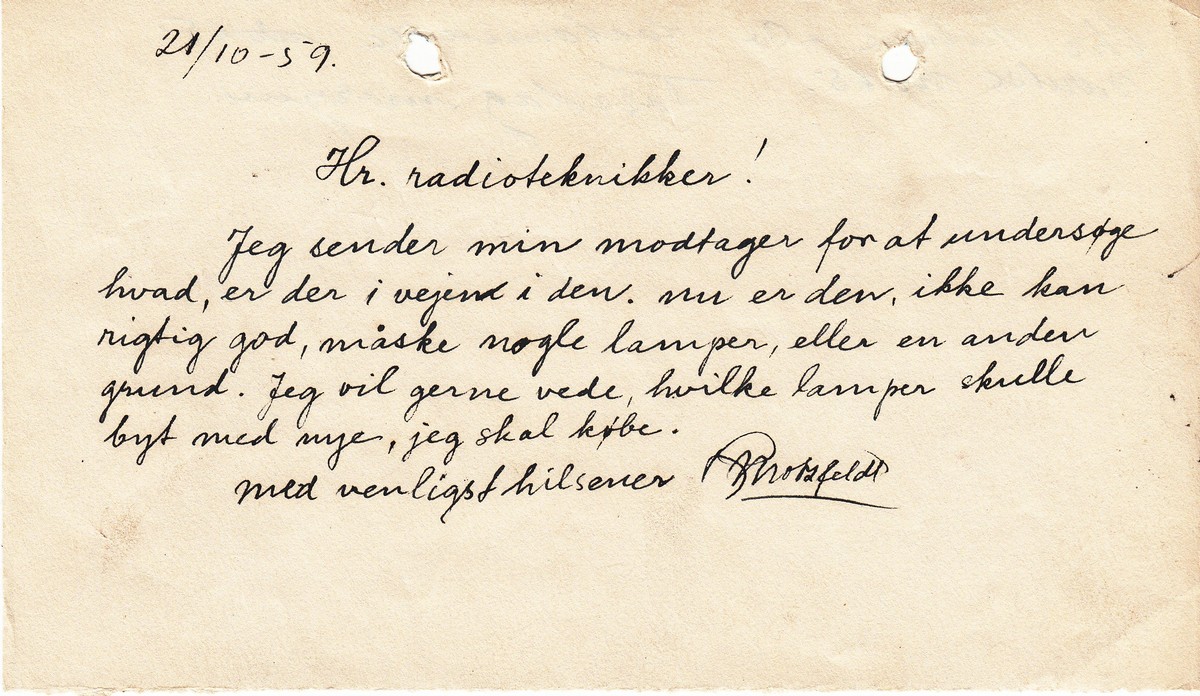 21/10-59.
Hr. radioteknikker!
Jeg sender min modtager for at undersøge
hvad, er der i vejen i den. nu er den, ikke kan
rigtig god, måske nogle lamper, eller en anden
grund. Jeg vil gerne vede, hvilke lamper skulle
byt med nye, jeg skal købe.
med venligst hilsener